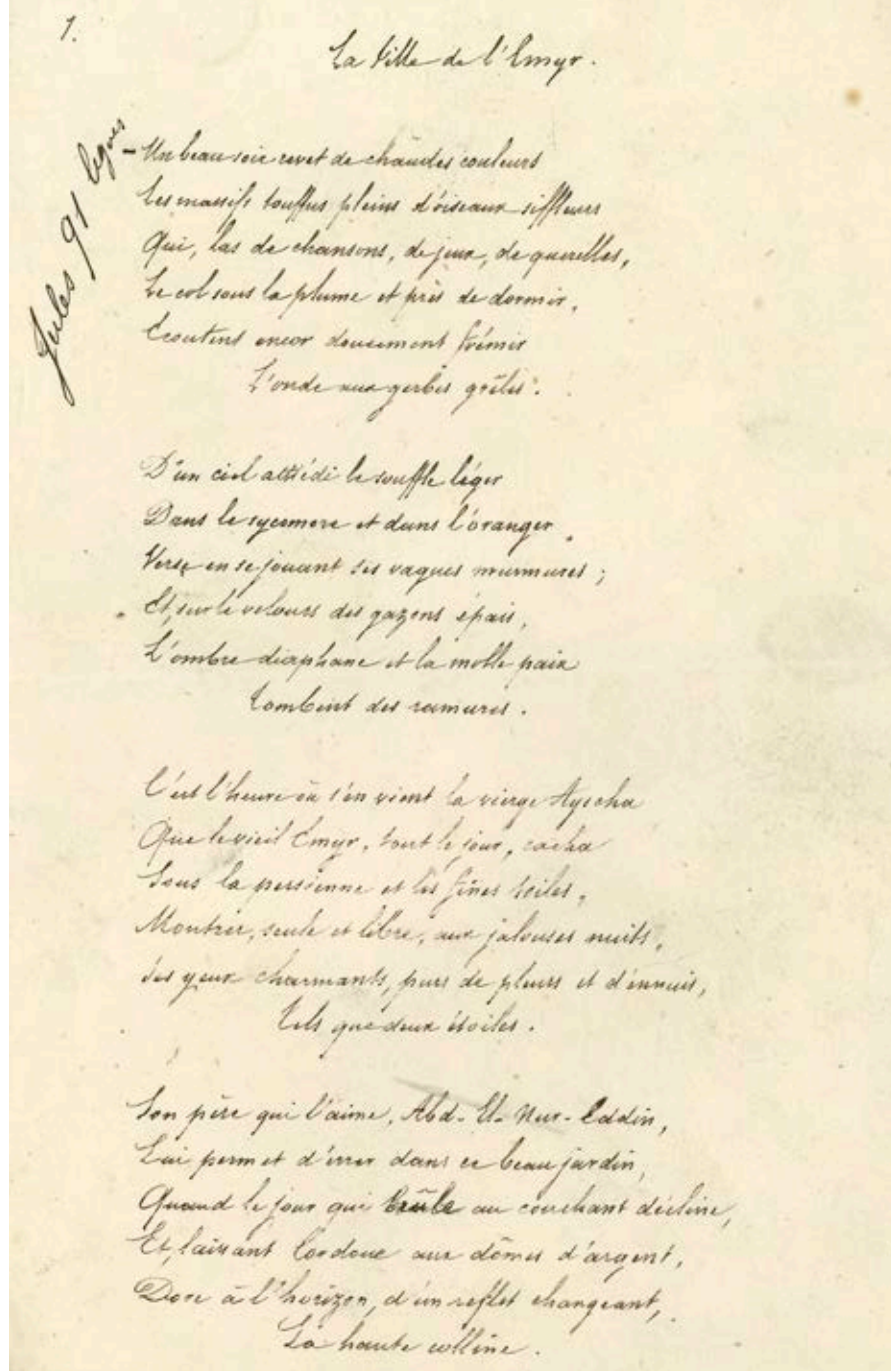 1.
La fille de l'Emyr.
Jules 91 lignes
Un beau soir revet de chaudes couleurs
Les massifs touffus pleins d'oiseaux siffleurs
Qui, las de chansons, de jeux, de querelles,
Le col sous la plume et près de dormir,
Écoutent encor doucement frémir
L'onde aux gerbes grêles.
D'un ciel attiédi le souffle léger
Dans le sycomore et dans l'oranger
Verse en se jouant ses vagues murmures ;
Et, sur le velours des gazons épais,
L'ombre diaphane et la molle paix
Tombent des ramures.
C'est l'heure où s'en vient la vierge Ayscha
Que le vieil Emyr, tout le jour, cacha
Sous la persienne et les fines toiles,
Montrer, seule et libre, aux jalouses nuits,
Ses yeux charmants, purs de pleurs et d'ennuis,
Tels que deux étoiles.
Son père qui l'aime, Abd-El-Nur-Eddin,
Lui permet d'errer dans ce beau jardin,
Quand le jour qui brûle au couchant décline,
Et, laissant Cordoue aux dômes d'argent,
Dore à l'horizon, d'un reflet changeant,
La haute colline.